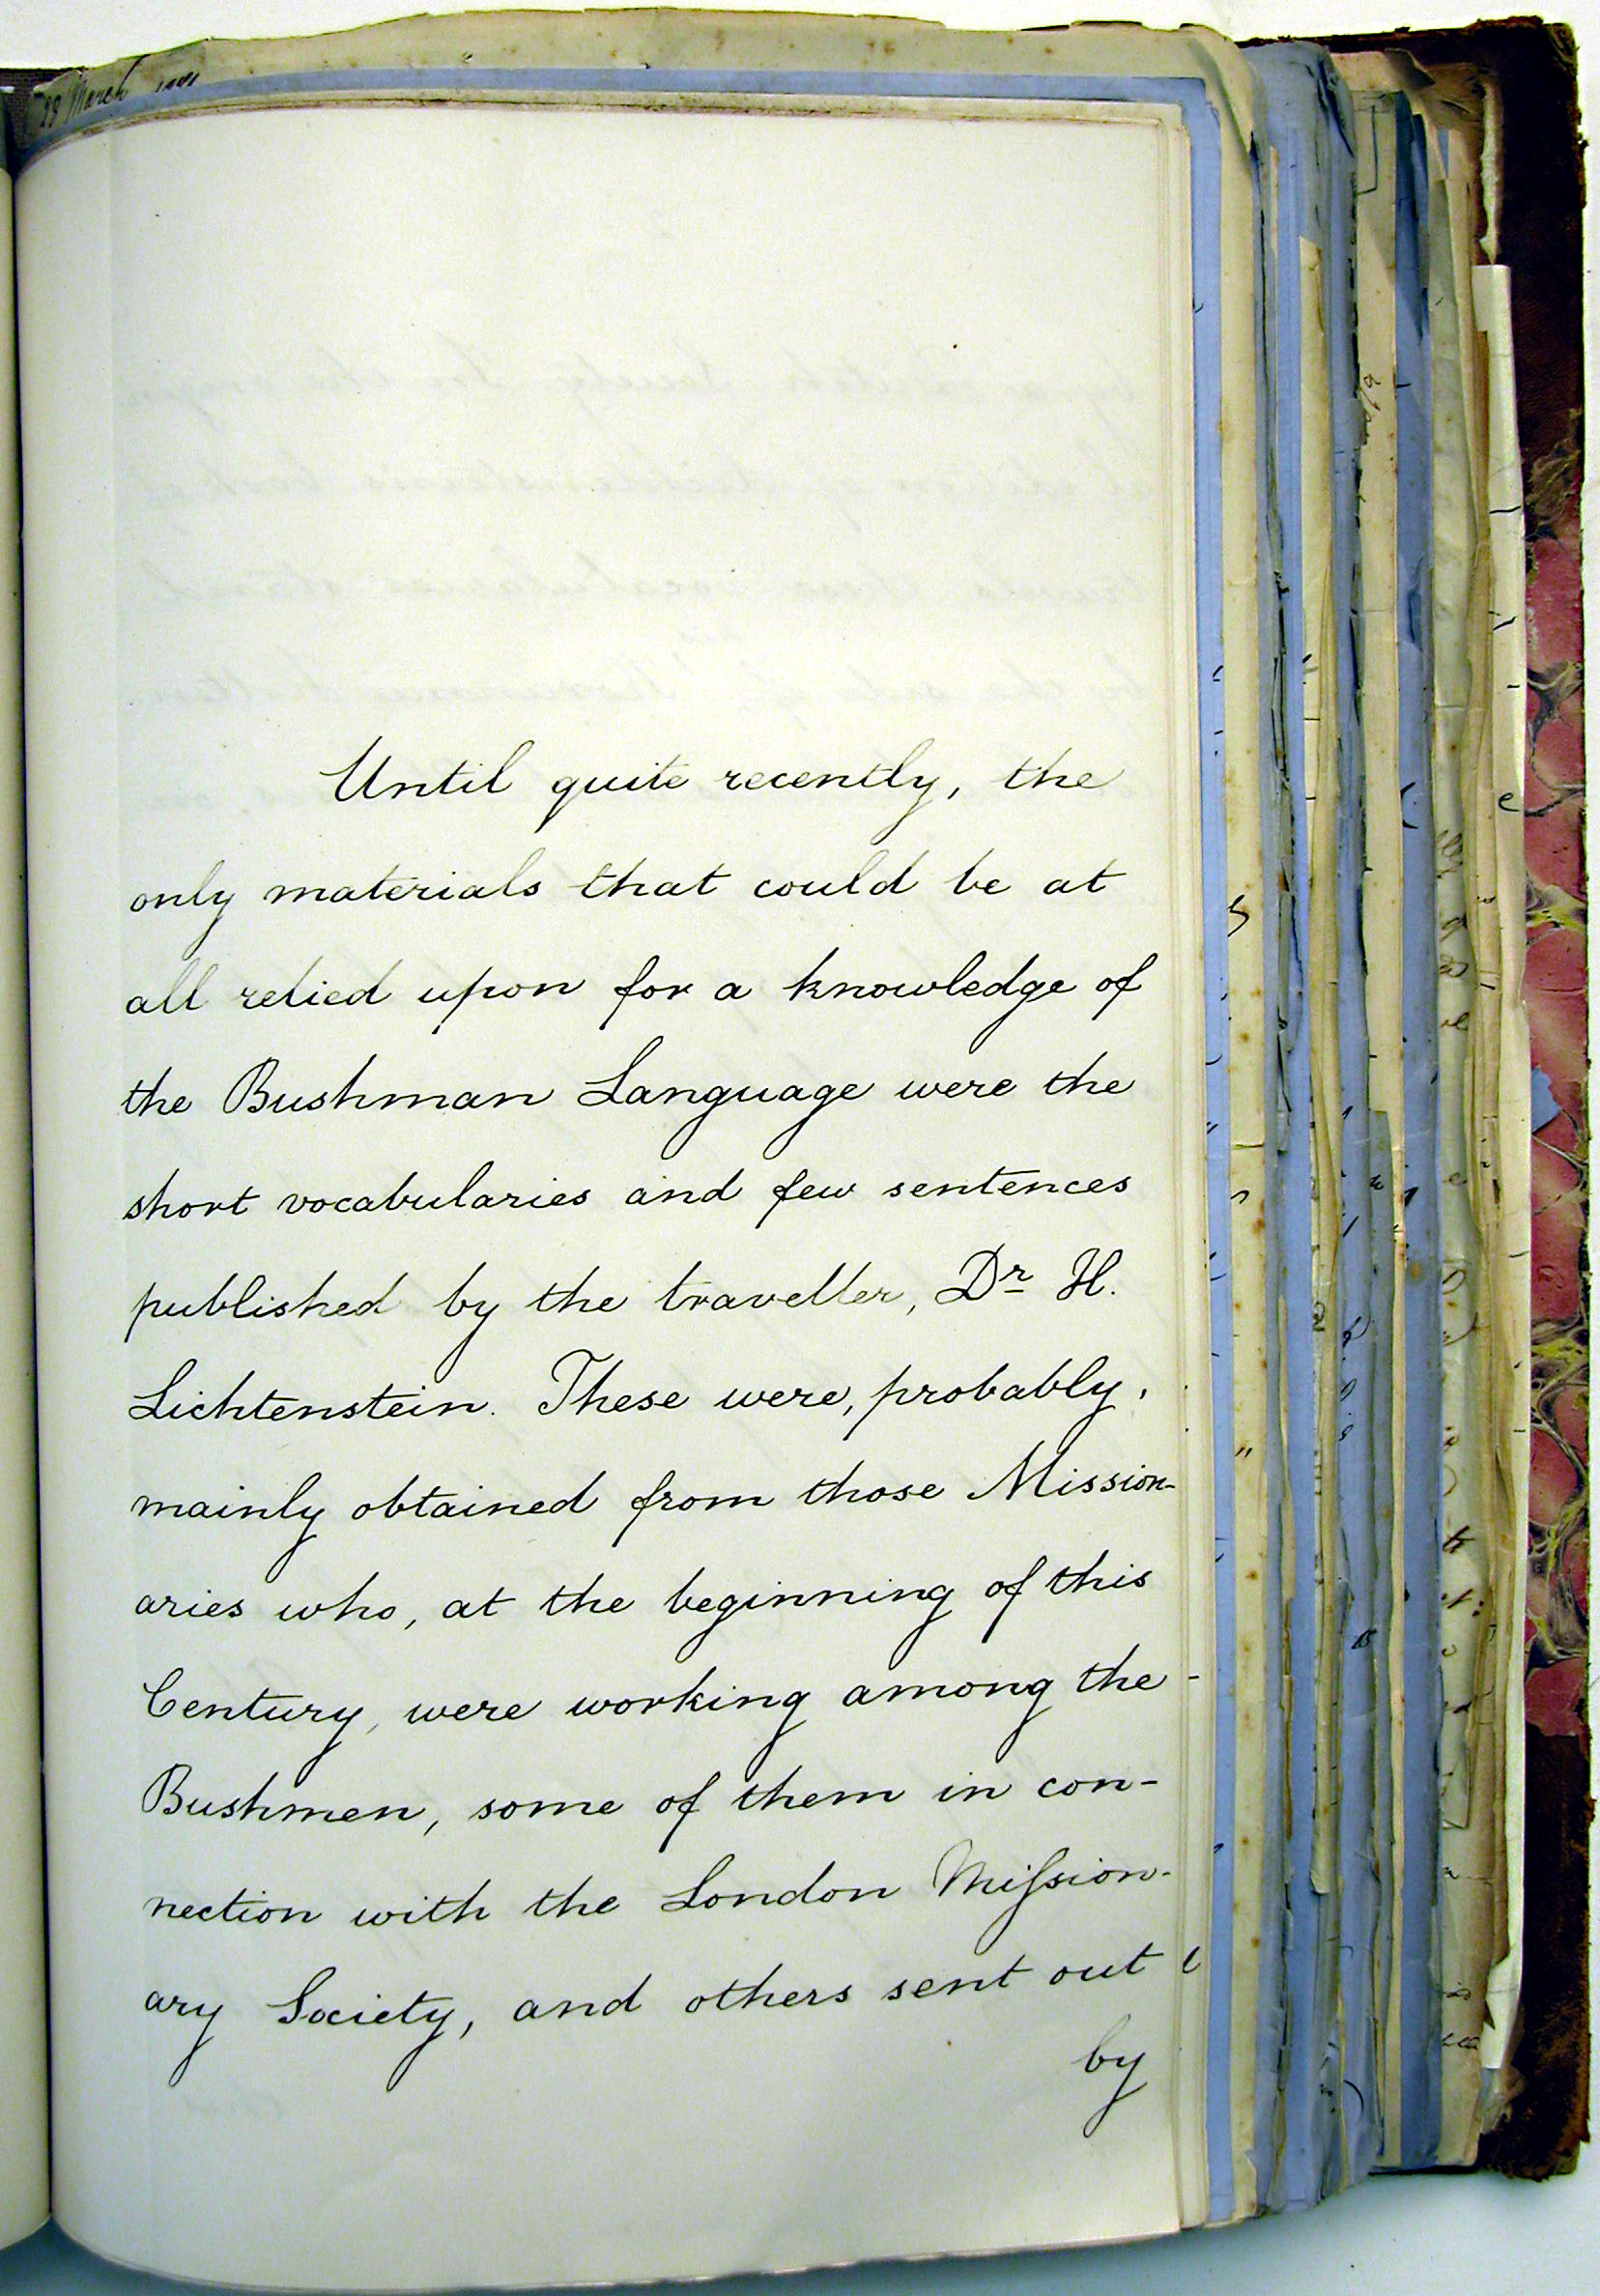 29 March
Until quite recently, the
only materials that could be at
all relied upon for a knowledge of
the Bushman Language were the
short vocabularies and few sentences
published by the traveller, Dr H.
Lichtenstein. These were, probably,
mainly obtained from those Mission-
aries who, at the beginning of this
Century, were working among the
Bushmen, some of them in con-
nection with the London Miſsion-
ary Society, and others sent out
by